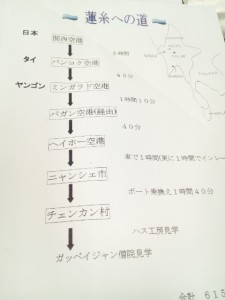 蓮糸への道
日本
関西空港
タイ
バンコク空港
ヤンゴン
ミンガラド空港
４５分
１時間１０分
バガン空港(経由)
４０分
ヘイホー空港
車で１時間(更に１時間でインレー
ニャンシェ市
ボート乗換え１時間４０分
チェンカン村
ハス工房見学
ガッペイジャン僧院見学
合計 ６１５